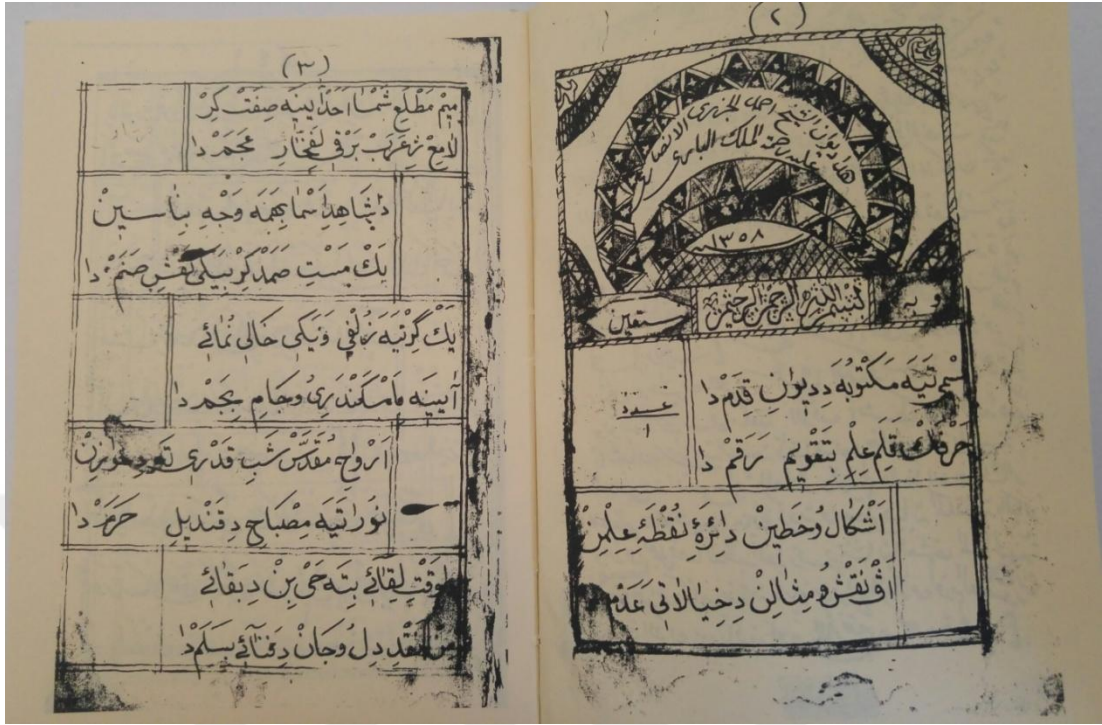 (٢)
هذا ديوان الشيخ احمد الجزري الانصاري
عليه رحمة الملك البارى
١٣٥٨
وبه بِسْمِ اللهِ الرَّحْمٰنِ الرَّحِيْمِ نستعين
اِسْمىٰ تَيَه مَكْتُوبَه دِديوانِ قِدَمْ دا
عدد
١
حَرْفَكْ قَلَمِ عِلْمِ بِتَقْويمِ رَقَمْ دا
اَشْكال وُخَطينْ دائِرَۀِ نُقْطَۀِ عِلْمِنْ
اَڤْ نَقْشُ ومِثالِنْ دِخيالاتىٰ عَدَمْ
(٣)
ميمْ مَطْلَعِ شَمْسا اَحَدْ آيينَه صِفَتْ كِرْ
لامِعْ ژِعَرَبْ بَرْقىٰ لِفَخّارِ عَجَمْ دا
دا شاهِدِ اَسْما بِهَمَه وَجْهِ بِناسينْ
يَكْ مَسْتِ صَمَدْ كِرْ يَكىٰ نَقْشِ صَنَمْ دا
يَكْ گِرْتيَه زُلْفىٰ وَيَكىٰ خالىٰ نُمائىٰ
آيينَه مَاسْكَنْدَرىُ وجامِ بِجَمْ دا
اَرْواحِ مُقَدَّسْ شَبِ قَدْرىٰ
نُورا تَيَه مِصْباحِ دِقَنْديلِ حَرَمْ دا
وَقْتِ لِقائىٰ بِتَه حَىّ بِنْ دِبَقائىٰ
نَقْدِ دِلُ وجانْ دِفَنائىٰ بِسَلَمْ دا